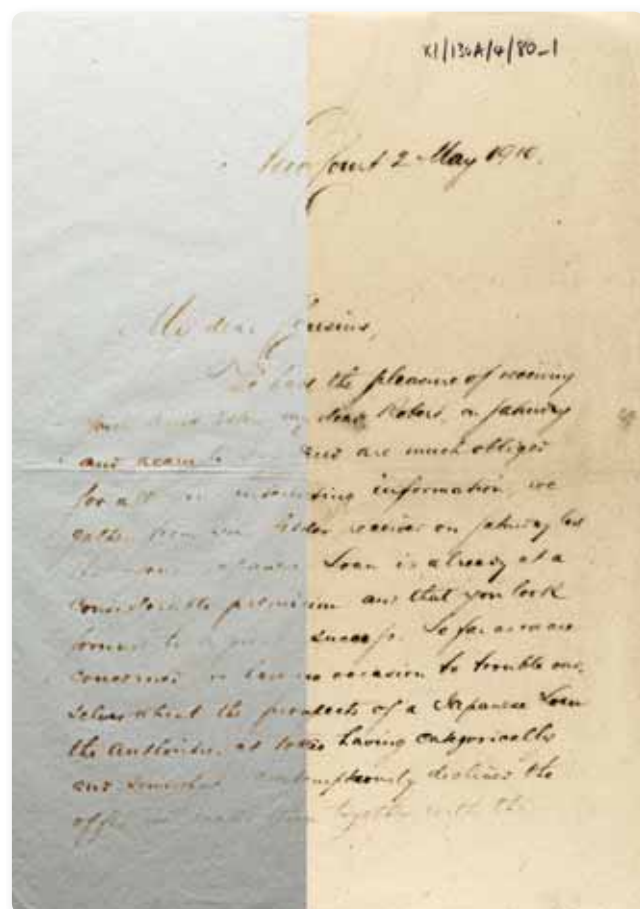 XI/130A/4/80_1
New Court 2 May 1910.
My dear Cousins,
We had the pleasure of receiving
your letter my dear Robert, on Saturday
and again and are much obliged
for all interesting information, we
gather from letter received on Saturday last
Loan is already at a
considerable premium and that you look
forward to a success. So far as we are
concerned we have no occasion to trouble our
selves about the prospects of a Japanese Loan
the Authorities at Tokio having categorically
and somewhat contemptuously declined the
offer we made them together with the